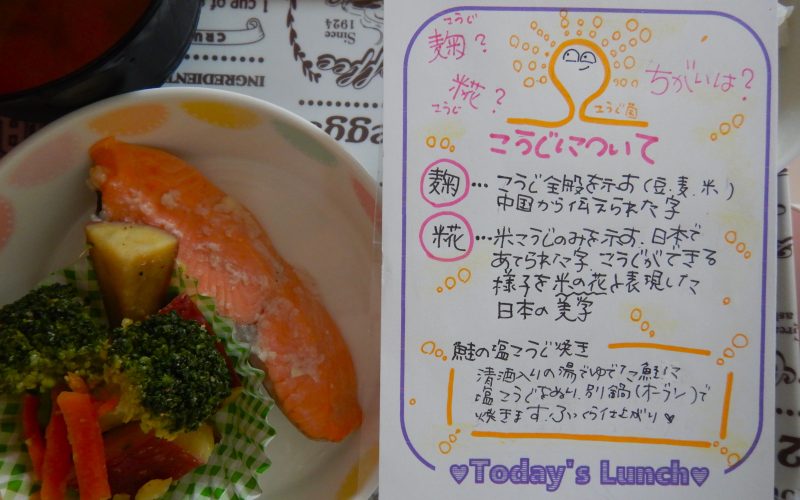 Since
1924
Coffee
INGREDIENTS
1 CUP OF
こうじ
麹?
糀?
こうじ
ちがいは?
こうじ菌
こうじについて
麹…こうじ全般を示す(豆.麦.米)
中国から伝えられた字
糀…米こうじのみを示す.日本で
あてられた字 こうじができる
様子を米の花と表現した
日本の美字
鮭の塩こうじ焼き
清酒入りの湯でゆでた鮭に
塩こうじをぬり.別鍋(オーブン)で
焼きます.ふっくら仕上がり♥
♥Today's Lunch♥